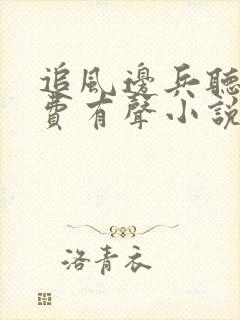 追風邊兵聽
費有聲小說
洛青衣